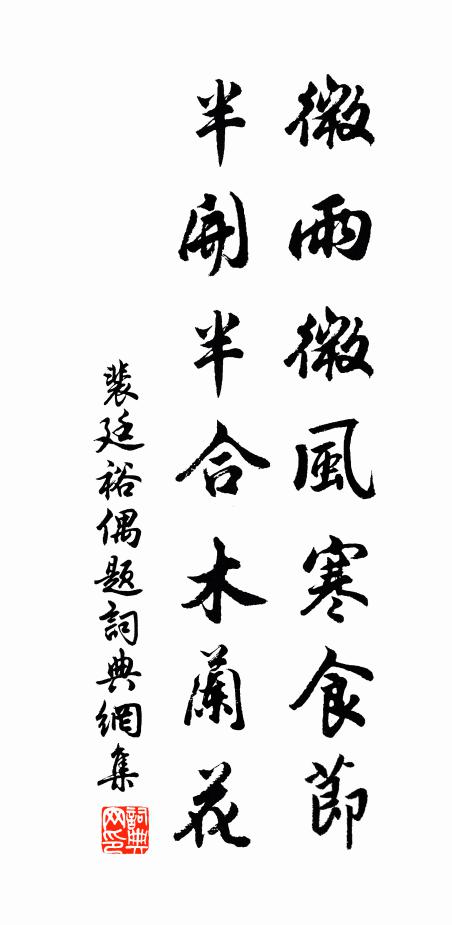 微雨微風寒食節
半開半合木蘭花
裴廷裕偶題詞典網集
詞典网印